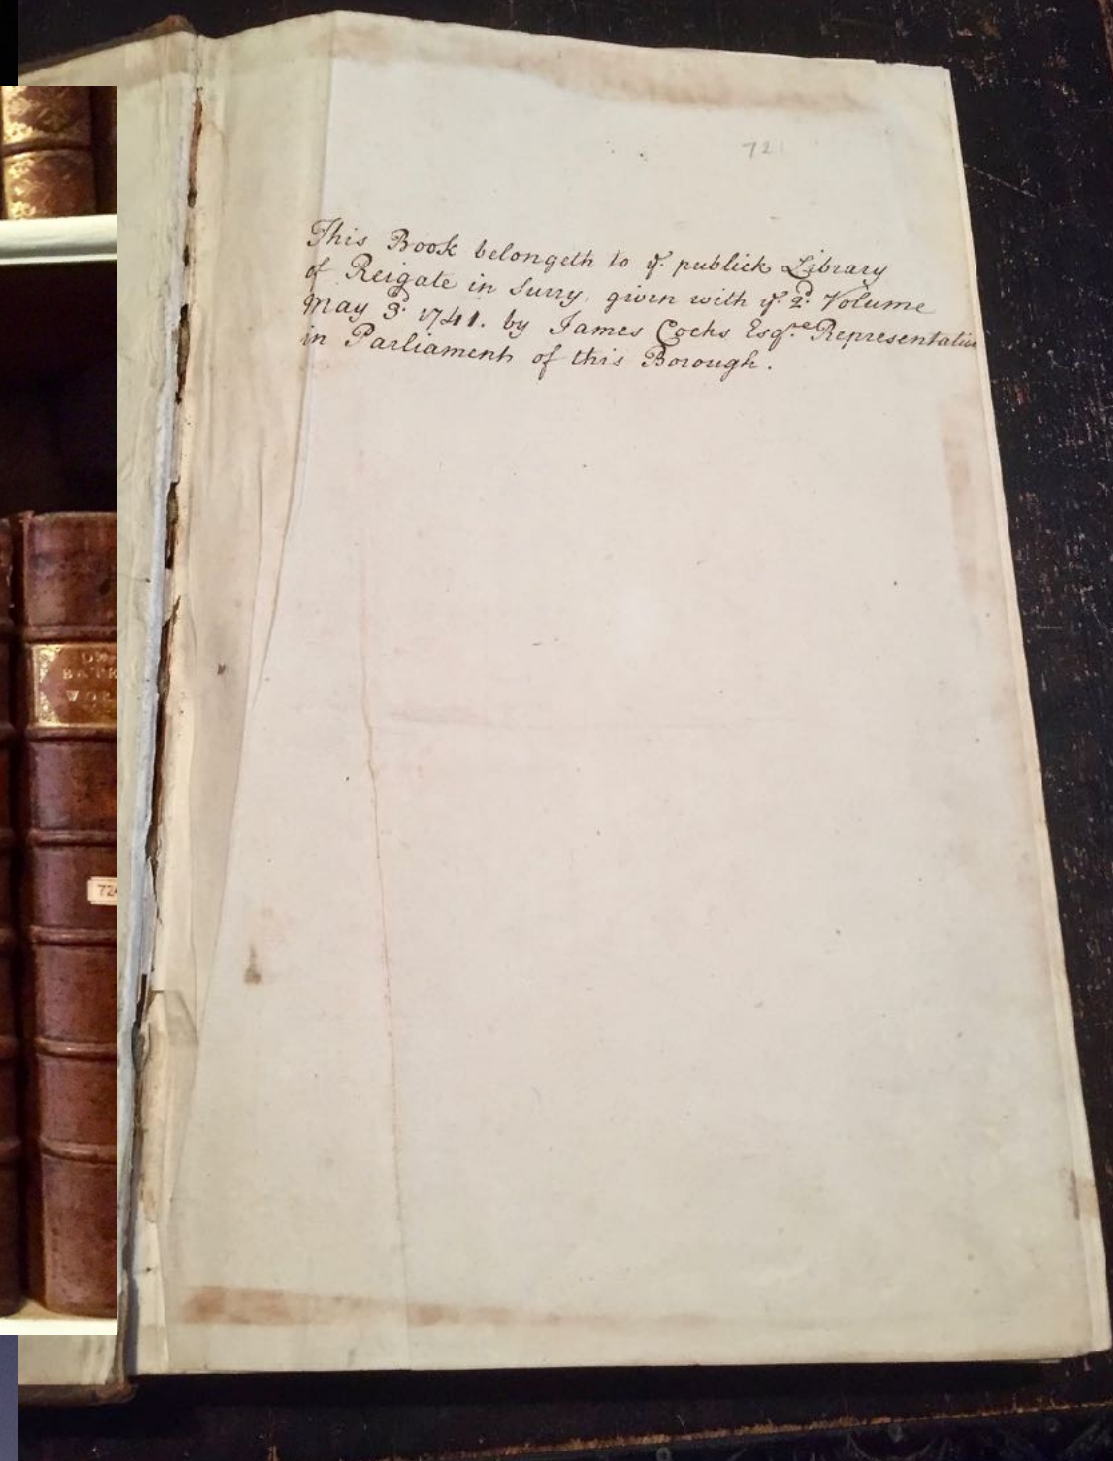 721
This Book belongeth to yᵉ. publick Library
of Reigate in Surry, given with yᵉ. 2ᵈ. Volume
May 3ᵈ. 1741. by James Cocks Esqʳᵉ Representative
in Parliament of this Borough.
WOR
724